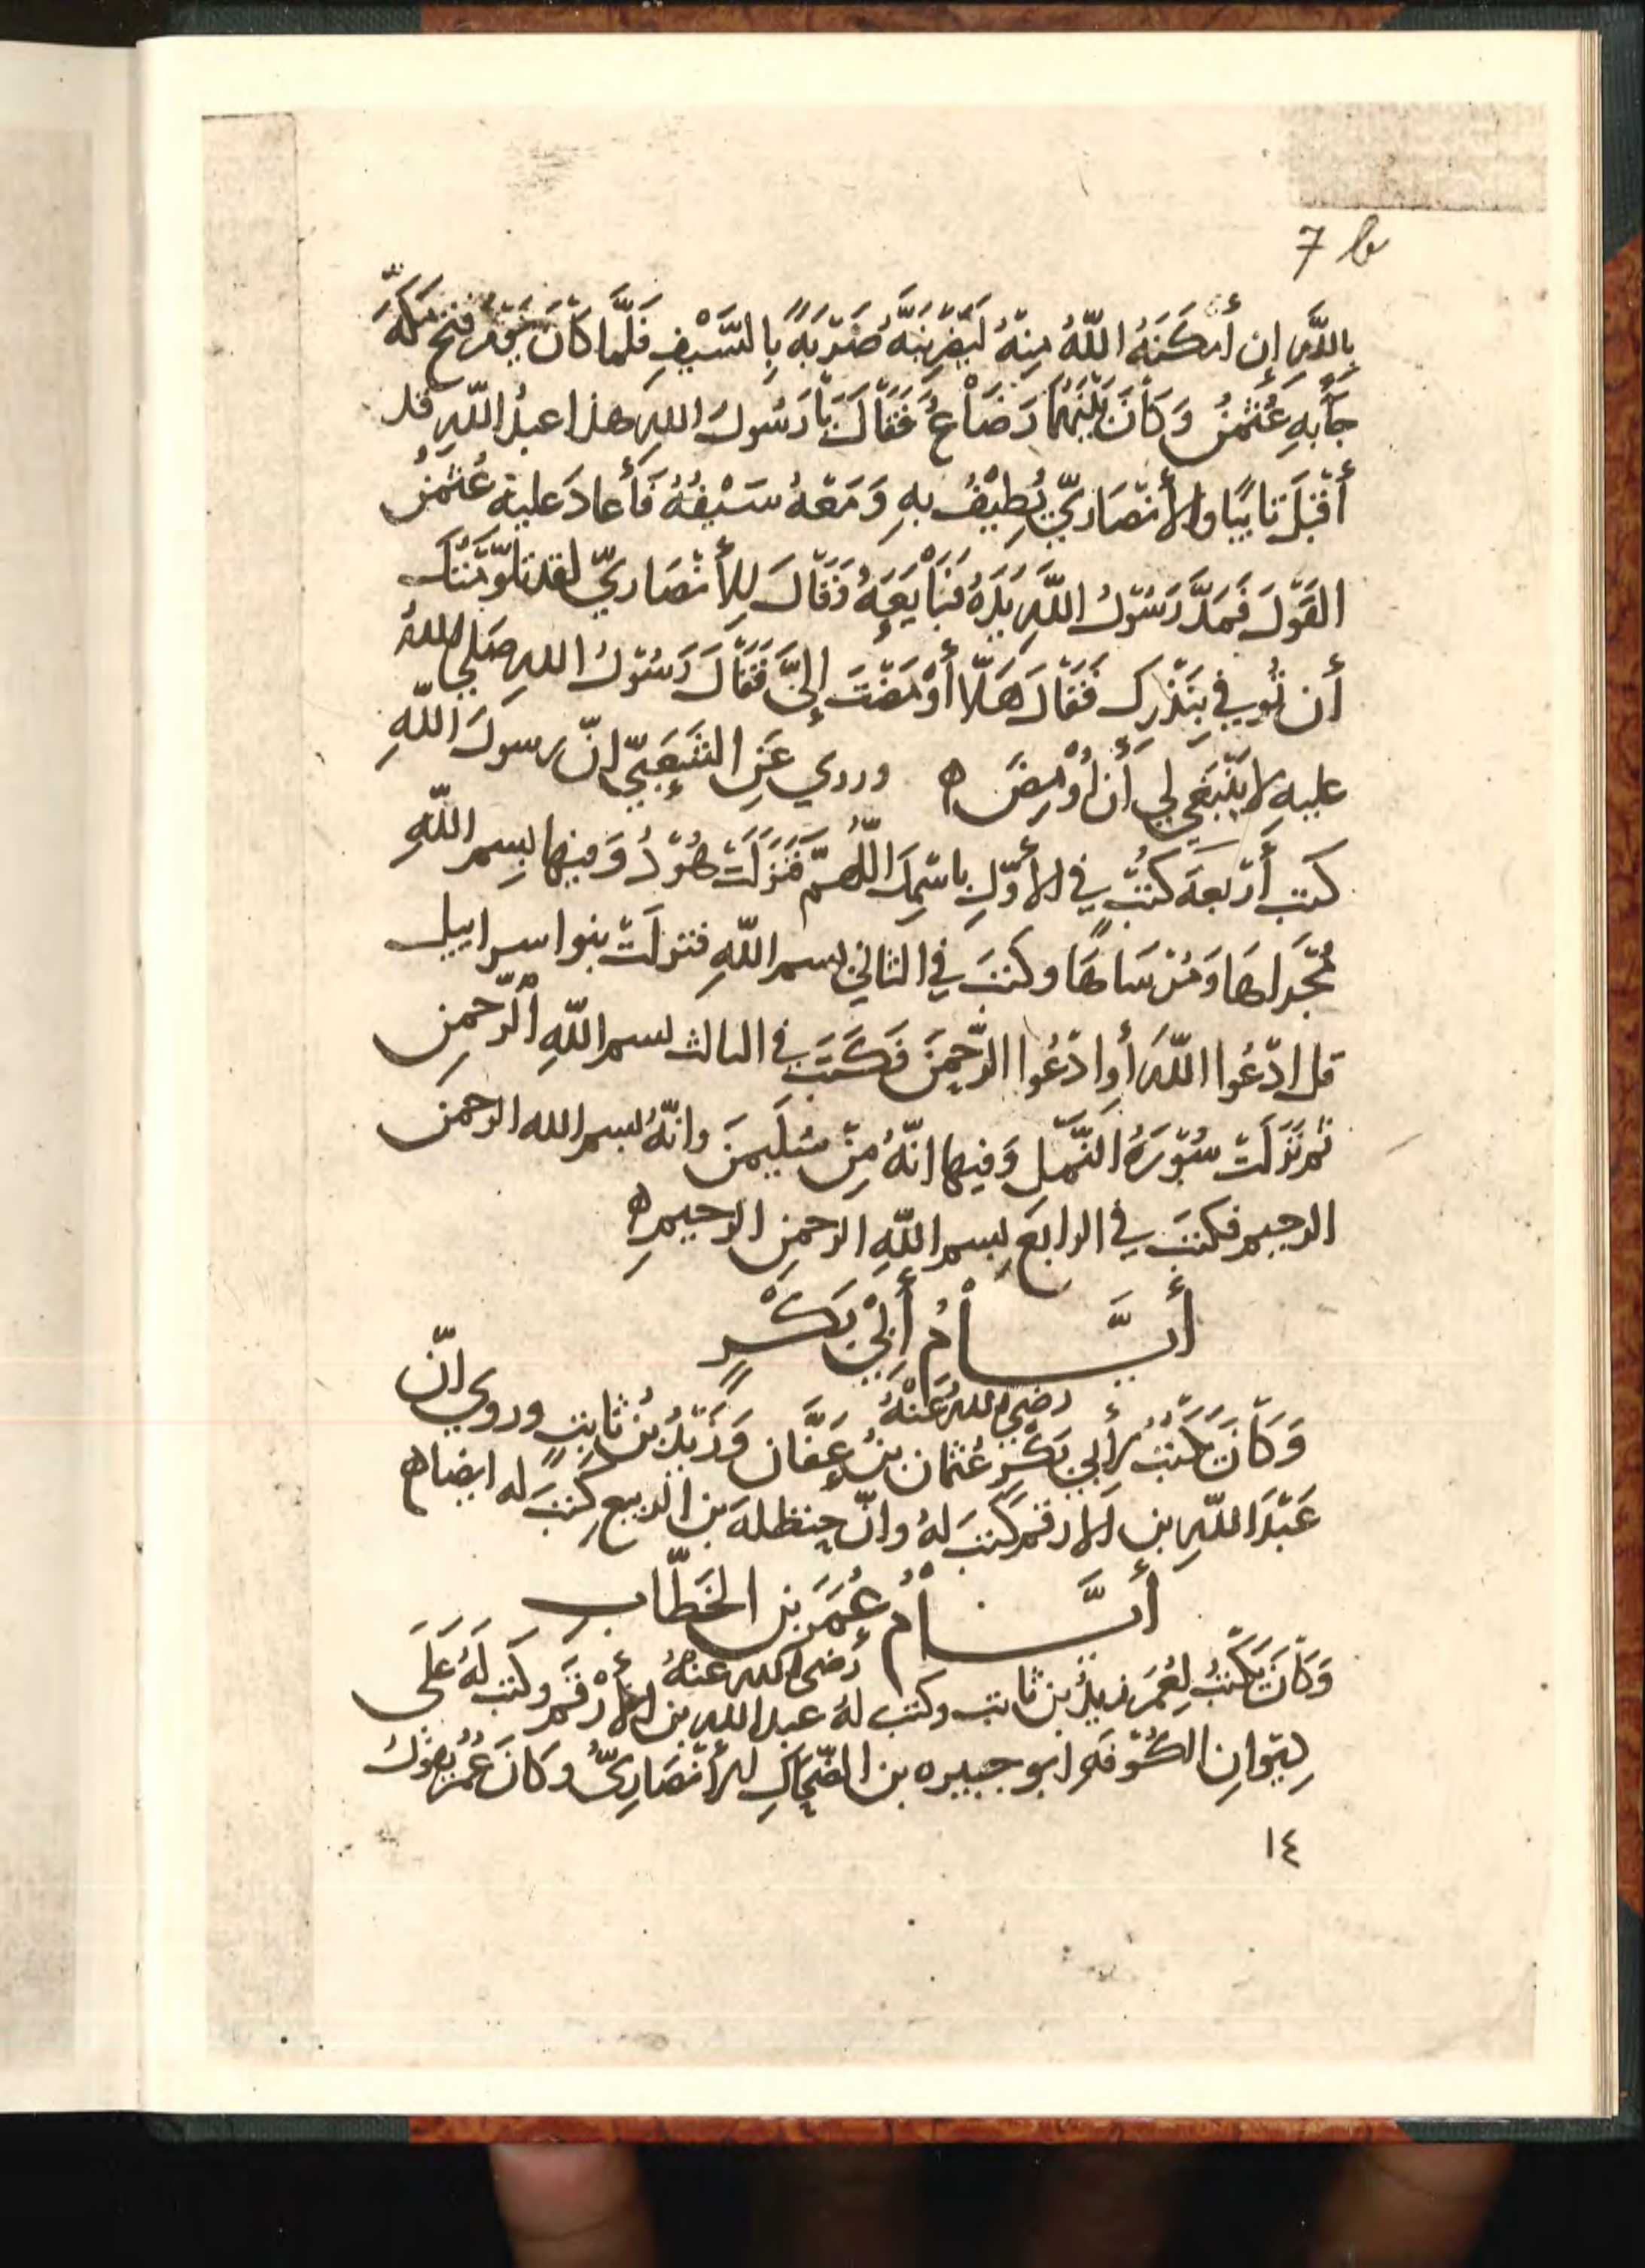 7 b
بِاللَّهِ إِن أَمْكَنَهُ اللَّهُ مِنْهُ لَيَضْرِبَنَّهُ ضَرْبَةً بِالسَّيْفِ فَلَمَّا كَانَ يَوْمُ فتح مَكَّةَ
جَآ بِهِ عُثْمٰنُ وَكَانَ بَيْنَهُمَا رَضَاعٌ فَقَالَ يَا رَسُولَ اللهِ هذا عبدُ اللَّهِ قد
أَقْبَلَ تَايِبًا والأَنْصَارِيّ يُطِيْفُ بِهِ وَمَعَهُ سَيْفُهُ فَأَعادَ عليه عُثمٰنُ
القَوْلَ فَمَدَّ رَسُوْلُ اللَّهِ يَدَهُ فَبَايَعَهُ وَقَالَ لِلأَنْصَارِيِّ لقد تلوّمْتُكَ
أَن تُوفي بِنَذْرِكَ فَقَالَ هَلَّا أَوْمَضْتَ إِلَيَّ فَقَالَ رَسُوْلُ اللهِ صَلى اللهُ
عليهِ لا يَنْبَغي لي أَن أُوْمِضَ ه وروي عَنِ الشَّعْبِيّ انّ رسولَ اللَّهِ
كتب أَرْبَعةَ كتُبٍ في الأَوَّلِ باسْمِكَ اللَّهُمَّ فَنَزَلَتْ هُوْدُ وَفيها بِسمِ اللَّهِ
مُجْراها وَمُرْسَاهَا وكتبَ في الثاني بسم اللَّهِ فنزلَتْ بنوا سراييل
قل ادْعُوا اللَّهَ أَوِ ادْعُوا الرَّحمٰنَ فَكَتَبَ في الثالث بسم اللَّهِ الرَّحمٰنِ
ثم نَزَلَتْ سُوْرَةُ النَّمْلِ وَفيها انّهُ مِنْ سُلَيمٰنَ وانّهُ بسم الله الرحمن
الرحيم فكتبَ في الرابعِ بِسم اللَّهِ الرحمٰنِ الرحيمِ ه
أَيَّــامُ أَبِيْ بَكْرٍ
رضي اللهُ عَنْهُ
وَكَانَ يَكْتُبُ لأَبي بَكْرٍ عُثمان بنُ عَفَّان وَزَيْدُ بْنُ ثابتٍ وروي انّ
عَبْدَ اللَّهِ بن الارقم كتبَ لهُ وانّ حنظلة بن الربيع كتبَ له ايضا ه
أَيَّــامُ عُمَرَ بن الخَطَّاب
رَضى الله عنهُ
وَكَانَ يَكْتُبُ لِعُمَرَ زيدُ بن ثابت وكتب لهُ عبد الله بن الأَرْقَم وكتب لَهُ عَلَى
دِيْوانِ الكُوْفَةِ ابو جبيره بن الضّحاكِ الأَنْصَارِيّ وكَانَ عُمَرُ يقوْلُ
١٤